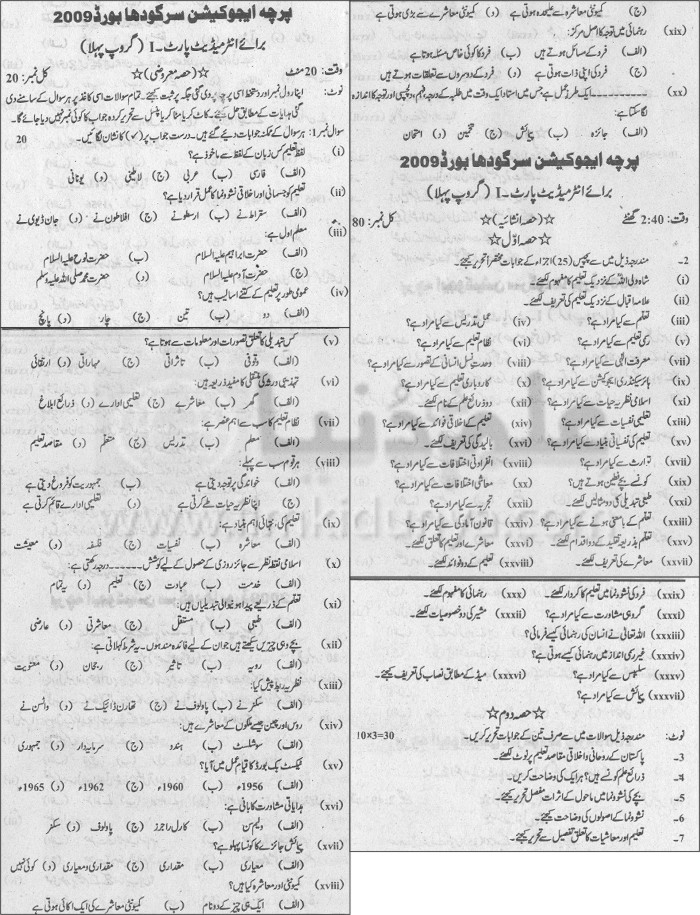 پرچہ ایجوکیشن سرگودھا بورڈ 2009
برائے انٹرمیڈیٹ پارٹ۔I (گروپ پہلا)
وقت: 20 منٹ ☆(حصہ معروضی)☆ کل نمبر: 20
نوٹ: اپنا رول نمبر اور دستخط اسی پرچہ پر دی گئی جگہ پر ثبت کیجئے۔ تمام سوالات اسی کاغذ پر ہر سوال کے سامنے دی
گئی ہدایات کے مطابق حل کیجئے۔ کاٹ کر یا مٹا کر یا پنسل سے تحریر کردہ جواب کا کوئی نمبر نہیں دیا جائے گا۔
سوال نمبر1: ہر سوال کے ممکنہ جوابات دیئے گئے ہیں۔ درست جواب پر (✓) کا نشان لگائیں۔ 20
(i) لفظ تعلیم کس زبان کے لفظ سے ماخوذ ہے؟
(الف) فارسی (ب) عربی (ج) لاطینی (د) یونانی
(ii) تعلیم کو جسمانی اور اخلاقی نشوونما کا عمل قرار دیا ہے؟
(الف) سقراط نے (ب) ارسطو نے (ج) افلاطون نے (د) جان ڈیوی نے
(iii) معلم اول ہے:
(الف) حضرت ابراہیم علیہ السلام (ب) حضرت نوح علیہ السلام
(ج) حضرت آدم علیہ السلام (د) حضرت محمد صلی اللہ علیہ وسلم
(iv) عمومی طور پر تعلیم کے کتنے اسالیب ہیں؟
(الف) دو (ب) تین (ج) چار (د) پانچ
(v) کس تبدیلی کا تعلق تصورات اور معلومات سے ہوتا ہے؟
(الف) وقوفی (ب) تاثراتی (ج) مہاراتی (د) ارتقائی
(vi) تہذیبی ورثہ کی منتقلی کا مفید ذریعہ ہیں:
(الف) گھر (ب) معاشرے (ج) تعلیمی ادارے (د) ذرائع ابلاغ
(vii) نظام تعلیم کا سب سے اہم عنصر ہے:
(الف) معلم (ب) تدریس (ج) متعلم (د) مقاصد تعلیم
(viii) ہر قوم سب سے پہلے:
(الف) خواندگی پر توجہ دیتی ہے (ب) جمہوریت کو فروغ دیتی ہے
(ج) اپنا نظریہ حیات طے کرتی ہے (د) تعلیمی ادارے قائم کرتی ہے
(ix) تعلیم کی انتہائی اہم بنیاد ہے:
(الف) معاشرہ (ب) نفسیات (ج) فلسفہ (د) معیشت
(x) اسلامی نقطہ نظر سے جائز روزی کے حصول کے لیے کوشش۔۔۔۔۔۔ درجہ رکھتی ہے:
(الف) خدمت (ب) عبادت (ج) تعلیم (د) یہ تمام
(xi) تعلم کے ذریعے پیدا ہونے والی تبدیلیاں ہیں:
(الف) طبعی (ب) مستقل (ج) معاشرتی (د) عارضی
(xii) بچے وہی چیزیں سیکھتے ہیں جو ان کے لیے فائدہ مند ہوں۔ یہ شرط کہلاتی ہے:
(الف) رویہ (ب) تاثیر (ج) رجحان (د) معنویت
(xiii) نظریہ ربط پیش کیا:
(الف) سکنر نے (ب) پاولوف نے (ج) تھارن ڈائیک نے (د) واٹسن نے
(xiv) روس اور چین جیسے ملکوں کے معاشرے ہیں:
(الف) سوشلسٹ (ب) ہندو (ج) سرمایہ دار (د) جمہوری
(xv) ٹیکسٹ بک بورڈ کا قیام عمل میں آیا؟
(الف) 1956ء (ب) 1960ء (ج) 1962ء (د) 1965ء
(xvi) ہدایاتی مشاورت کا بانی ہے:
(الف) ولیم سن (ب) کارل راجرز (ج) پاولوف (د) سکنر
(xvii) پیمائش جائزے کا کونسا پہلو ہے؟
(الف) معیاری (ب) مقداری (ج) مقداری و معیاری (د) کوئی نہیں
(xviii) کمیونٹی اور معاشرہ کیا ہیں؟
(الف) ایک ہی چیز کے دو نام (ب) کمیونٹی معاشرے کی ایک اکائی ہوتی ہے
(ج) کمیونٹی معاشرہ سے علیحدہ ہوتی ہے (د) کمیونٹی معاشرے سے بڑی ہوتی ہے
(xix) رہنمائی میں توجہ کا اصل مرکز:
(الف) فرد کے مسائل ہوتے ہیں (ب) فرد کا کوئی خاص مسئلہ ہوتا ہے
(ج) فرد کی اپنی ذات ہوتی ہے (د) فرد کے دوسروں سے تعلقات ہوتے ہیں
(xx) ۔۔۔۔۔۔ ایک طرز عمل ہے جس میں استاد ایک وقت میں طلبہ کے درجہ فہم، دلچسپی اور توجہ کا اندازہ
لگا سکتا ہے:
(الف) جائزہ (ب) پیمائش (ج) تخمین (د) امتحان
پرچہ ایجوکیشن سرگودھا بورڈ 2009
برائے انٹرمیڈیٹ پارٹ۔I (گروپ پہلا)
وقت: 2:40 گھنٹے ☆(حصہ انشائیہ)☆ کل نمبر: 80
☆ حصہ اوّل ☆
2- مندرجہ ذیل میں سے پچیس (25) اجزاء کے جوابات مختصراً تحریر کیجئے۔
(i) شاہ ولی اللہ کے نزدیک تعلیم کا مفہوم لکھئے۔
(ii) علامہ اقبال کے نزدیک تعلیم کی تعریف لکھئے۔
(iii) تعلم سے کیا مراد ہے؟ (iv) عمل تدریس سے کیا مراد ہے؟
(v) رسمی تعلیم سے کیا مراد ہے؟ (vi) نظام تعلیم سے کیا مراد ہے؟
(vii) معرفت الٰہی سے کیا مراد ہے؟ (viii) وحدت نسل انسانی کے تصور سے کیا مراد ہے؟
(ix) ہائر سیکنڈری ایجوکیشن سے کیا مراد ہے؟ (x) کاروباری تعلیم سے کیا مراد ہے؟
(xi) اسلامی نظریہ حیات سے کیا مراد ہے؟ (xii) دو ذرائع علم کے نام لکھئے۔
(xiii) تعلیمی نفسیات سے کیا مراد ہے؟ (xiv) تعلیم کے اخلاقی فوائد سے کیا مراد ہے؟
(xv) تعلیم کی نفسیاتی بنیاد سے کیا مراد ہے؟ (xvi) بالیدگی کی تعریف لکھئے۔
(xvii) توارث سے کیا مراد ہے؟ (xviii) انفرادی اختلافات سے کیا مراد ہے؟
(xix) کونسے بچے فطین ہوتے ہیں؟ (xx) معاشی اختلافات سے کیا مراد ہے؟
(xxi) طبعی تبدیلی کی دو مثالیں لکھئے۔ (xxii) تجربہ سے کیا مراد ہے؟
(xxiii) تعلم کے بامعنی ہونے سے کیا مراد ہے؟ (xxiv) قانون آمادگی سے کیا مراد ہے؟
(xxv) تعلم بذریعہ تقلید کے دو اقدام لکھئے۔ (xxvi) معاشرے اور تعلیم کا تعلق لکھئے۔
(xxvii) معاشرے کی تعریف لکھئے۔ (xxviii) تعلیم کے دو فوائد لکھئے۔
(xxix) فرد کی نشوونما میں تعلیم کا کردار لکھئے۔ (xxx) رہنمائی کا مفہوم لکھئے۔
(xxxi) گروہی مشاورت سے کیا مراد ہے؟ (xxxii) مشیر کی دو خصوصیات لکھئے۔
(xxxiii) اللہ تعالیٰ نے انسان کی رہنمائی کیسے فرمائی؟
(xxxiv) غیر رسمی انداز میں رہنمائی کیسے ہوتی ہے؟
(xxxv) سلیبس سے کیا مراد ہے؟ (xxxvi) میڈ کے مطابق نصاب کی تعریف کیجئے۔
(xxxvii) پیمائش سے کیا مراد ہے؟
☆ حصہ دوم ☆
نوٹ: مندرجہ ذیل سوالات میں سے صرف تین کے جوابات تحریر کریں۔ 10×3=30
3- پاکستان کے روحانی و اخلاقی مقاصد تعلیم پر نوٹ لکھئے۔
4- ذرائع علم کونسے ہیں؟ ہر ایک کی وضاحت کریں۔
5- بچے کی نشوونما میں ماحول کے اثرات مفصل تحریر کیجئے۔
6- نشوونما کے اصولوں کی وضاحت کیجئے۔
7- تعلیم اور معاشیات کا تعلق تفصیل سے تحریر کیجئے۔